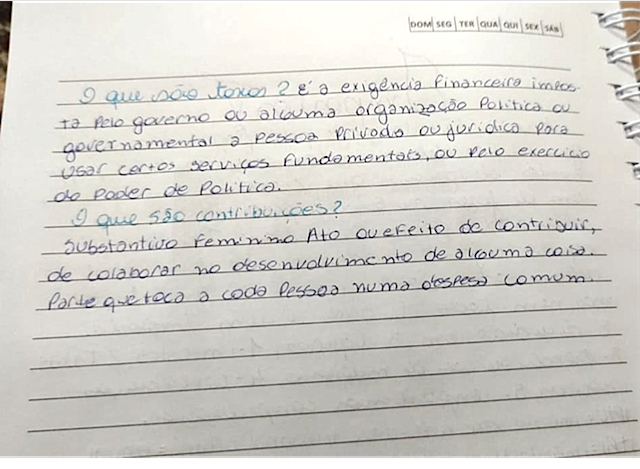 DOM SEG TER QUA QUI SEX SÁB
O que são taxas? É a exigência financeira impos-
ta pelo governo ou alguma organização Política ou
governamental a pessoa privada ou jurídica para
usar certos serviços fundamentais, ou pelo exercício
do poder de Política.
O que são contribuições?
Substantivo feminino Ato ou efeito de contribuir,
de colaborar no desenvolvimento de alguma coisa.
Parte que toca a cada Pessoa numa despesa comum.